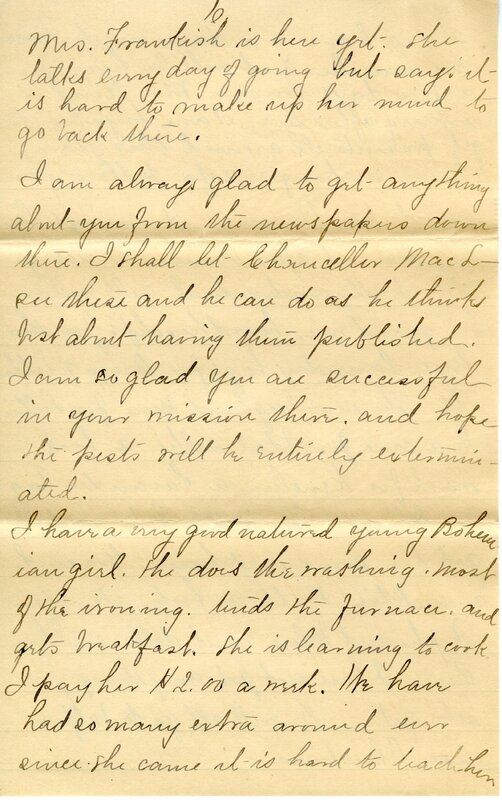 6
Mrs. Frankish is here yet. She
talks every day of going but says it
is hard to make up her mind to
go back there.
I am always glad to get anything
about you from the newspapers down
there. I shall let Chancellor Mac L-
see these and he can do as he thinks
best about having them published.
I am so glad you are successful
in your mission there. and hope
the pests will be entirely extermin-
ated.
I have a very good natured young Bohem-
ian girl. She does the washing. most
of the ironing. tends the furnace. and
gets breakfast. She is learning to cook
I pay her $2.00 a week. We have
had so many extra around ever
since she came it is hard to teach her